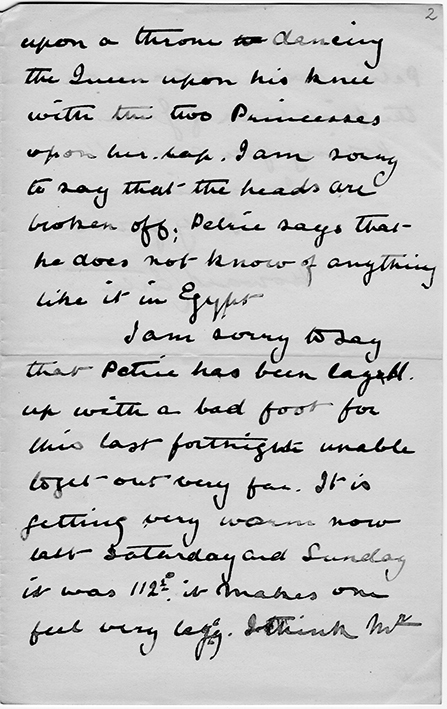 2
upon a throne to dancing
the Queen upon his knee
with the two Princesses
upon her lap. I am sorry
to say that the heads are
broken off; Petrie says that
he does not know of anything
like it in Egypt
I am sorry to say
that Petrie has been
up with a bad foot for
this last fortnight unable
to get out very far. It is
getting very warm now
last Saturday and Sunday
it was 112° it makes one
feel very lazy. I think Mr